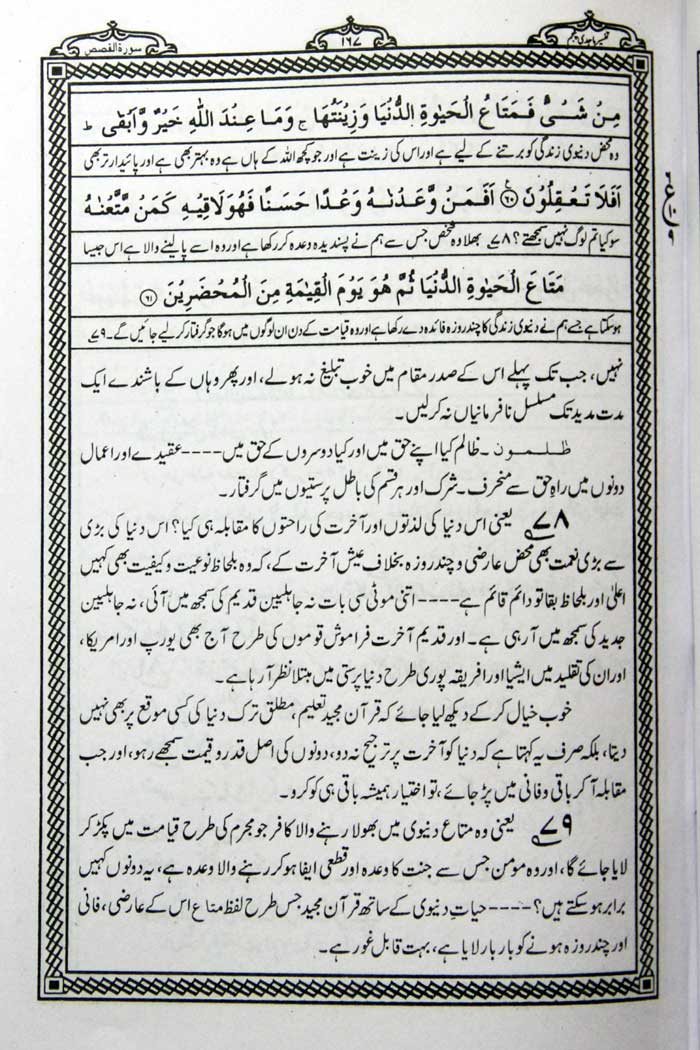 تفسیر ماجدی پنجم
۱۶۷
سورۃ القصص
مِنْ شَىْءٍ فَمَتَاعُ الْحَيٰوةِ الدُّنْيَا وَزِيْنَتُهَا ج وَمَا عِنْدَ اللّٰهِ خَيْرٌ وَّاَبْقٰى ط
وہ محض دنیوی زندگی کو برتنے کے لیے ہے اور اس کی زینت ہے اور جو کچھ اللہ کے ہاں ہے وہ بہتر بھی ہے اور پائیدار تر بھی
اَفَلَا تَعْقِلُوْنَ ع ﴿۶۰﴾ اَفَمَنْ وَّعَدْنٰهُ وَعْدًا حَسَنًا فَهُوَ لَاقِيْهِ كَمَنْ مَّتَّعْنٰهُ
سو کیا تم لوگ نہیں سمجھتے؟ ۷۸ بھلا وہ شخص جس سے ہم نے پسندیدہ وعدہ کر رکھا ہے اور وہ اسے پا لینے والا ہے اس جیسا
مَتَاعَ الْحَيٰوةِ الدُّنْيَا ثُمَّ هُوَ يَوْمَ الْقِيٰمَةِ مِنَ الْمُحْضَرِيْنَ ﴿۶۱﴾
ہو سکتا ہے جسے ہم نے دنیوی زندگی کا چند روزہ فائدہ دے رکھا ہے اور وہ قیامت کے دن ان لوگوں میں ہوگا جو گرفتار کر لیے جائیں گے۔ ۷۹
نہیں، جب تک پہلے اس کے صدر مقام میں خوب تبلیغ نہ ہولے، اور پھر وہاں کے باشندے ایک
مدت مدید تک مسلسل نافرمانیاں نہ کرلیں۔
ظلمون۔ ظالم کیا اپنے حق میں اور کیا دوسروں کے حق میں---- عقیدے اور اعمال
دونوں میں راہِ حق سے منحرف۔ شرک اور ہر قسم کی باطل پرستیوں میں گرفتار۔
۷۸ یعنی اس دنیا کی لذتوں اور آخرت کی راحتوں کا مقابلہ ہی کیا؟ اس دنیا کی بڑی
سے بڑی نعمت بھی محض عارضی و چند روزہ بخلاف عیش آخرت کے، کہ وہ بلحاظ نوعیت و کیفیت بھی کہیں
اعلیٰ اور بلحاظ بقا تو دائم قائم ہے---- اتنی موٹی سی بات نہ جاہلیین قدیم کی سمجھ میں آئی، نہ جاہلیین
جدید کی سمجھ میں آرہی ہے۔ اور قدیم آخرت فراموش قوموں کی طرح آج بھی یورپ اور امریکا،
اور ان کی تقلید میں ایشیا اور افریقہ پوری طرح دنیا پرستی میں مبتلا نظر آرہا ہے۔
خوب خیال کرکے دیکھ لیا جائے کہ قرآن مجید تعلیم، مطلق ترک دنیا کی کسی موقع پر بھی نہیں
دیتا، بلکہ صرف یہ کہتا ہے کہ دنیا کو آخرت پر ترجیح نہ دو، دونوں کی اصل قدر و قیمت سمجھے رہو، اور جب
مقابلہ آکر باقی و فانی میں پڑ جائے، تو اختیار ہمیشہ باقی ہی کو کرو۔
۷۹ یعنی وہ متاع دنیوی میں بھولا رہنے والا کافر جو مجرم کی طرح قیامت میں پکڑ کر
لایا جائے گا، اور وہ مومن جس سے جنت کا وعدہ اور قطعی ایفا ہو کر رہنے والا وعدہ ہے، یہ دونوں کہیں
برابر ہو سکتے ہیں؟---- حیاتِ دنیوی کے ساتھ قرآن مجید جس طرح لفظ متاع اس کے عارضی، فانی
اور چند روزہ ہونے کو بار بار لایا ہے، بہت قابل غور ہے۔